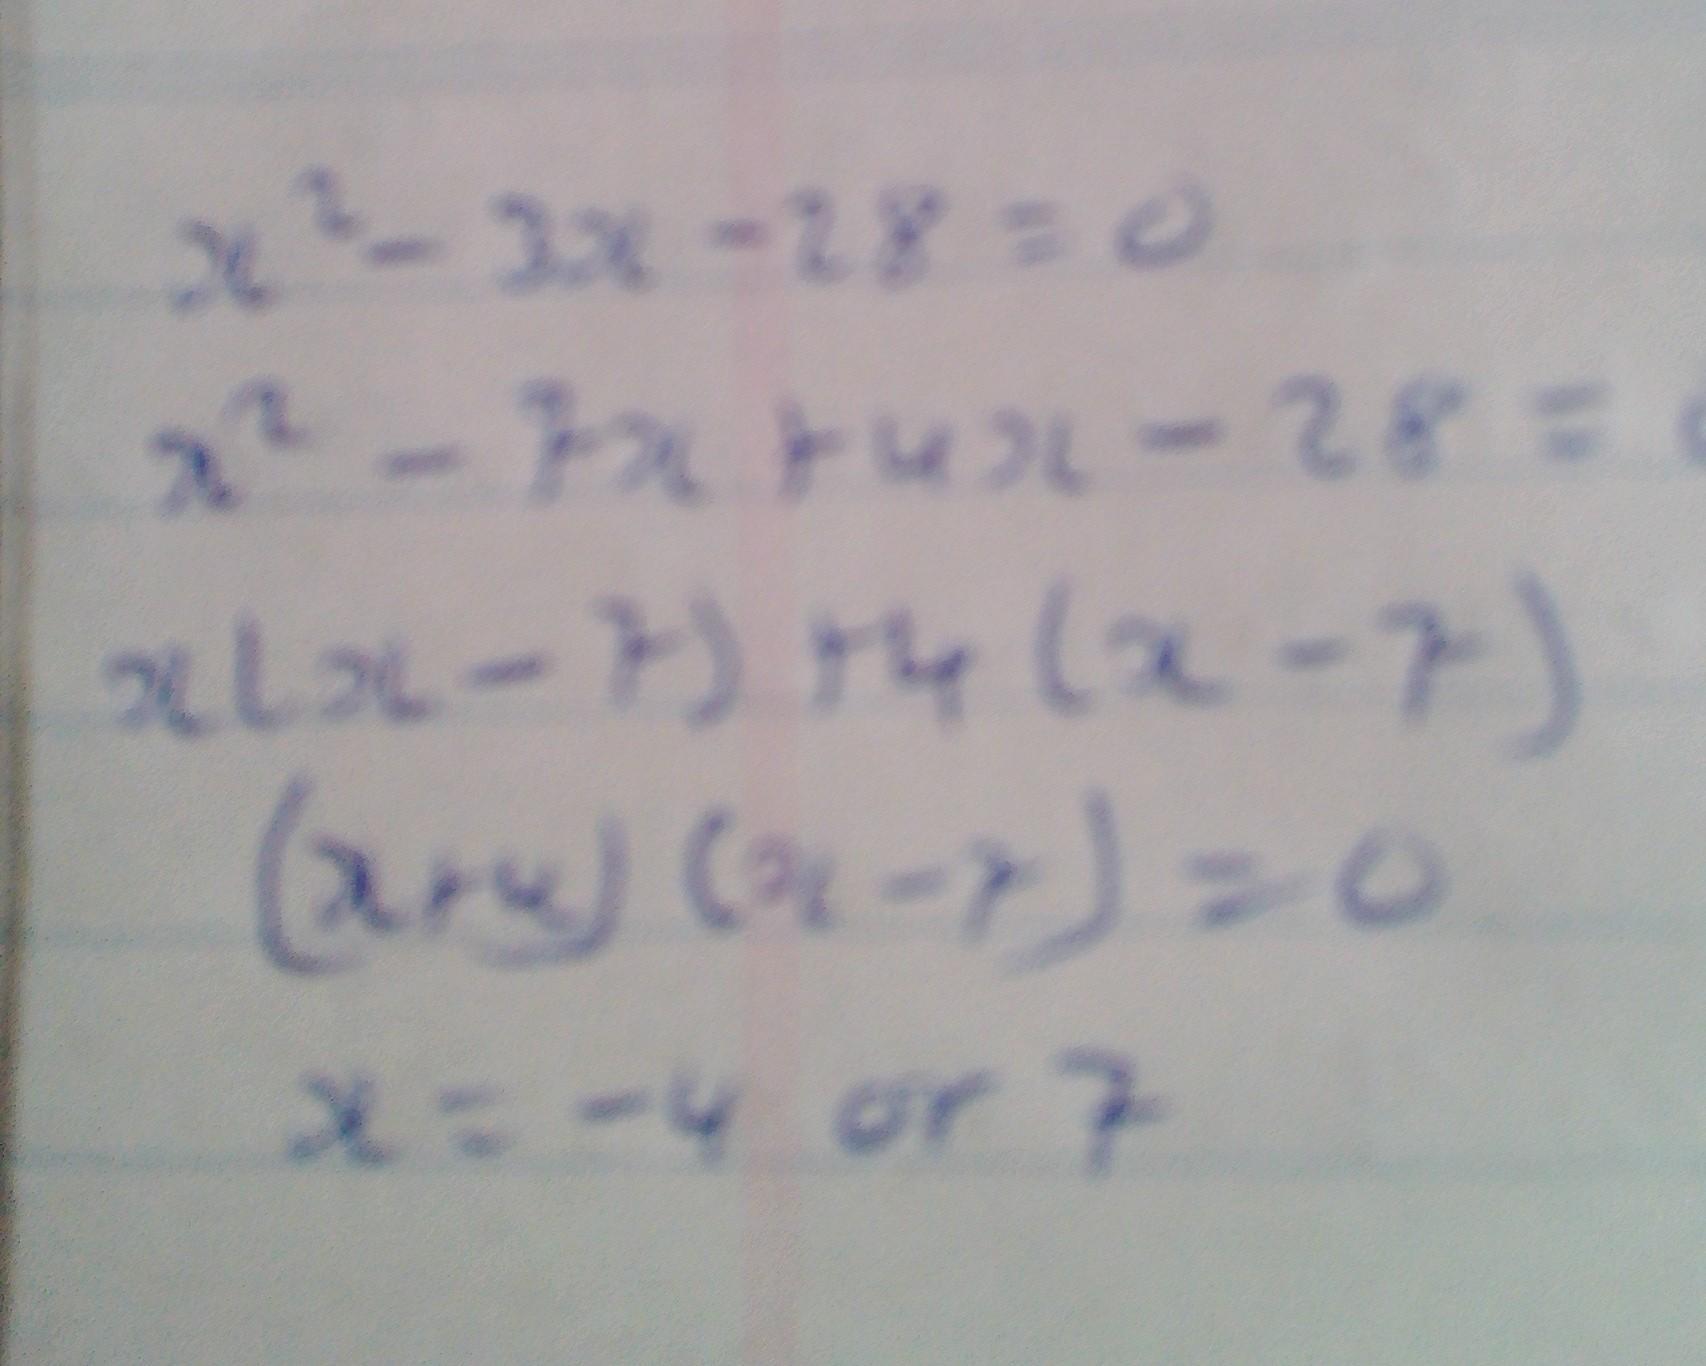 x² - 3x - 28 = 0
x² - 7x + 4x - 28 = 0
x(x - 7) + 4(x - 7)
(x+4) (x - 7) = 0
x = -4 or 7